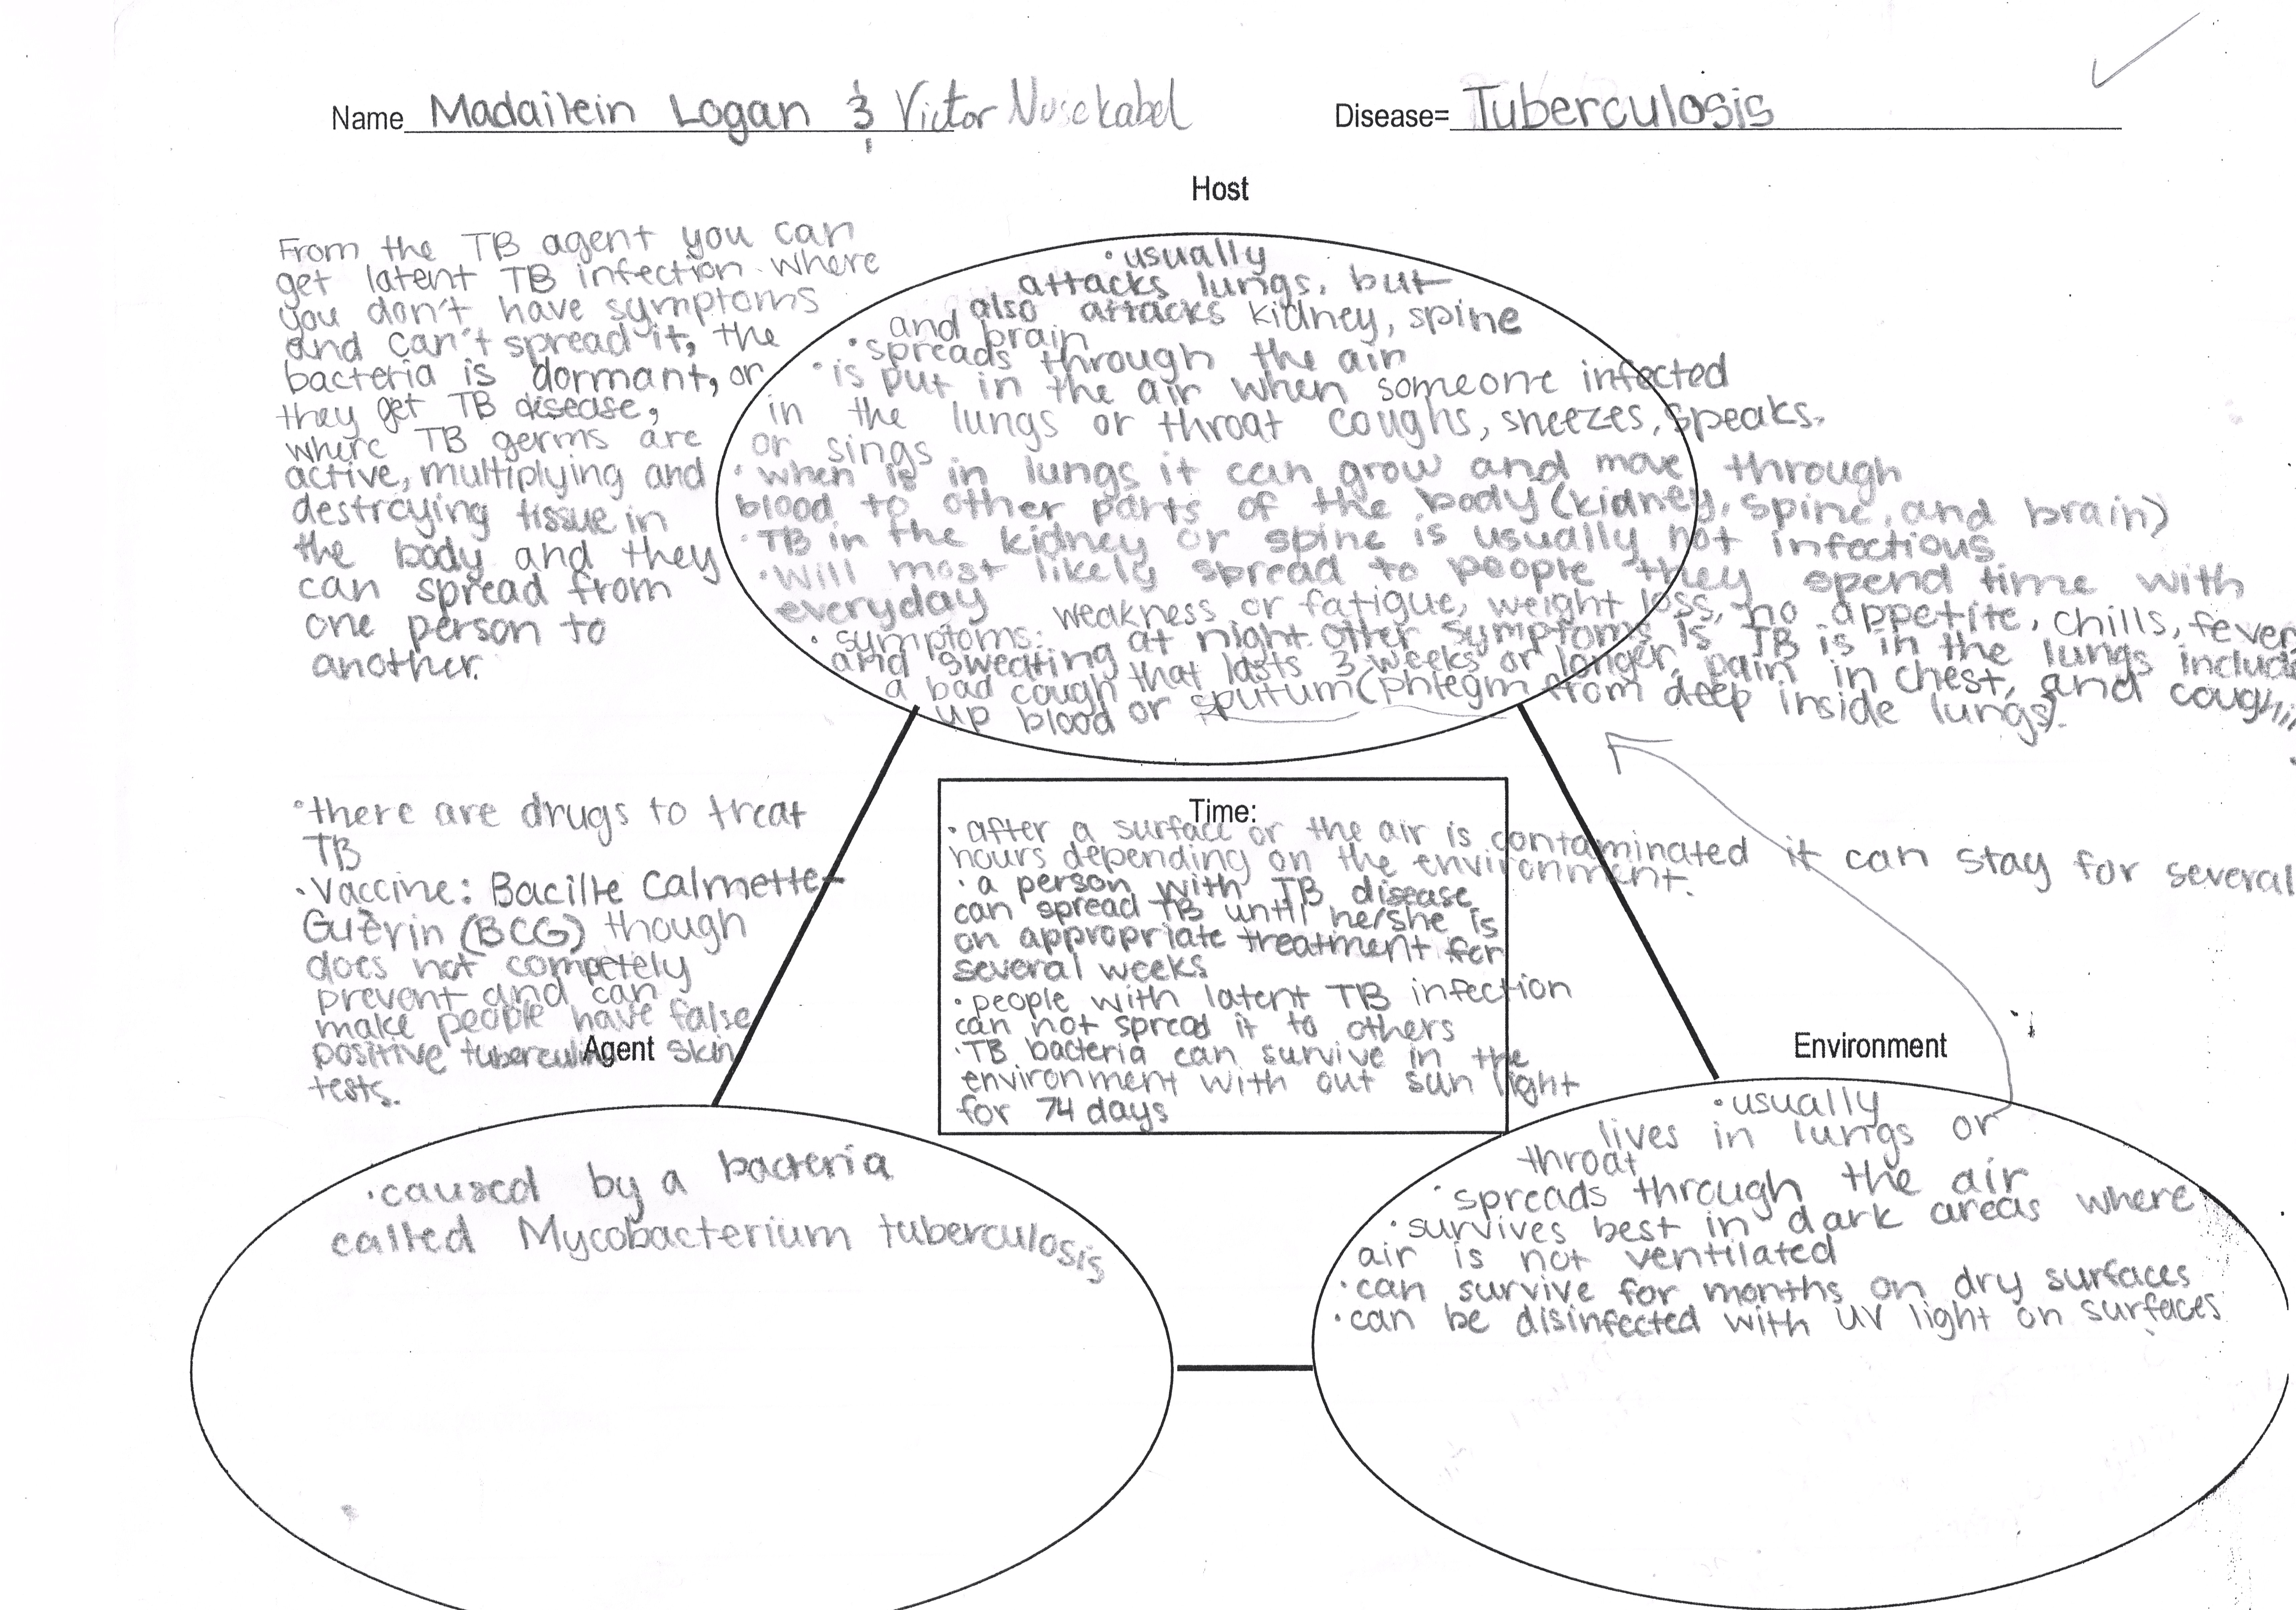 Name Madailein Logan & Victor Nusekabel
Disease= Tuberculosis
Host
From the TB agent you can
get latent TB infection where
you don't have symptoms
and can't spread it, the
bacteria is dormant, or
they get TB disease,
where TB germs are
active, multiplying and
destroying tissue in
the body and they
can spread from
one person to
another.
•usually
attacks lungs, but
also attacks kidney, spine
and brain
•spreads through the air
•is put in the air when someone infected
in the lungs or throat coughs, sneezes, speaks.
or sings
•when is in lungs it can grow and move through
blood to other parts of the body (kidney, spine, and brain)
•TB in the kidney or spine is usually not infectious
•Will most likely spread to people they spend time with
everyday
•symptoms: weakness or fatigue, weight loss, no appetite, chills, fever,
and sweating at night. Other symptoms is TB is in the lungs includ
a bad cough that lasts 3 weeks or longer, pain in chest, and coughing
up blood or sputum (phlegm from deep inside lungs).
•there are drugs to treat
TB
•Vaccine: Bacille Calmette-
Guèrin (BCG) though
does not competely
prevent and can
make people have false
positive tuberculin skin
tests.
Time:
•after a surface or the air is contaminated it can stay for several
hours depending on the environment.
•a person with TB disease
can spread TB until he/she is
on appropriate treatment for
several weeks
•people with latent TB infection
can not spread it to others
•TB bacteria can survive in the
environment with out sun light
for 74 days
Agent
•caused by a bacteria
called Mycobacterium tuberculosis
Environment
•usually
lives in lungs or
throat
•spreads through the air
•survives best in dark areas where
air is not ventilated
•can survive for months on dry surfaces
•can be disinfected with UV light on surfaces